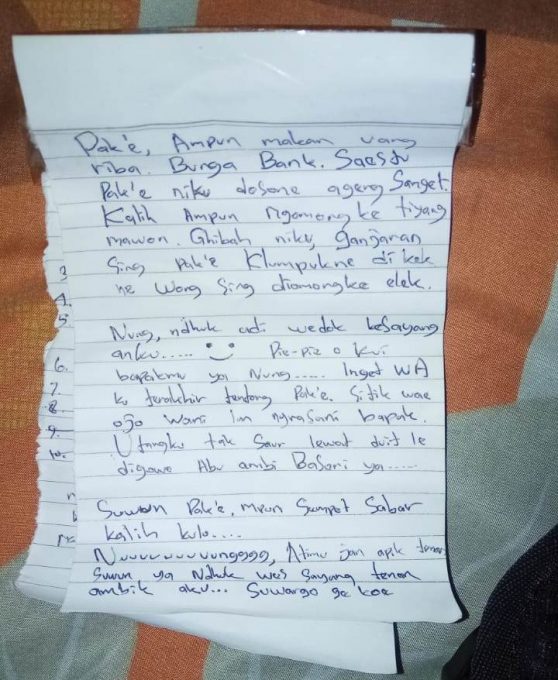 Pak'e, Ampun makan uang
riba. Bunga Bank. Saestu
Pak'e niku dosane ageng Sanget.
Kalih Ampun ngomongke tiyang
mawon. Ghibah niku, ganjaran
Sing Pak'e Klumpukne di kek
ne Wong Sing diomongke elek.
3
4.
5.
Nung, ndhuk adi wedok kesayang
anku..... Pie-pie o kui
bapakmu ya Nung..... Inget WA
ku terakhir tentang Pak'e. Sitik wae
ojo wani lan ngrasani bapak.
Utangku tak Saur lewat duit le
digowo Abu ambi Basori ya.....
6.
7.
8
9.
10.
Suwon Pak'e, mpun Sumpet Sabar
kalih kulo....
Nuuuuuuuuungggg, Atimu jan apik tenan
Suwun ya Ndhuk wes Sayang tenan
ambik aku... Suwargo ge koe